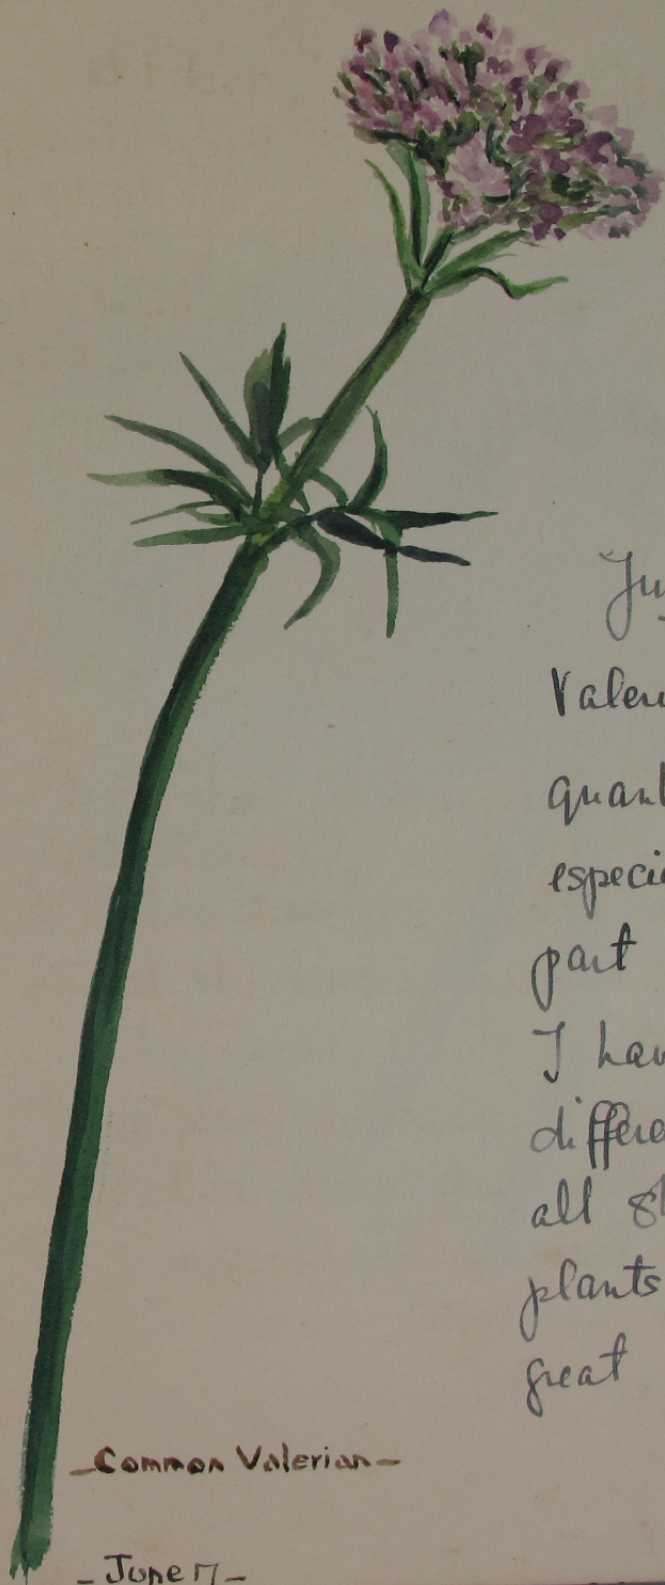 Valeri
quant
especi
part
I hav
differe
all
plants
great
- Common Valerian -
- June 17 -